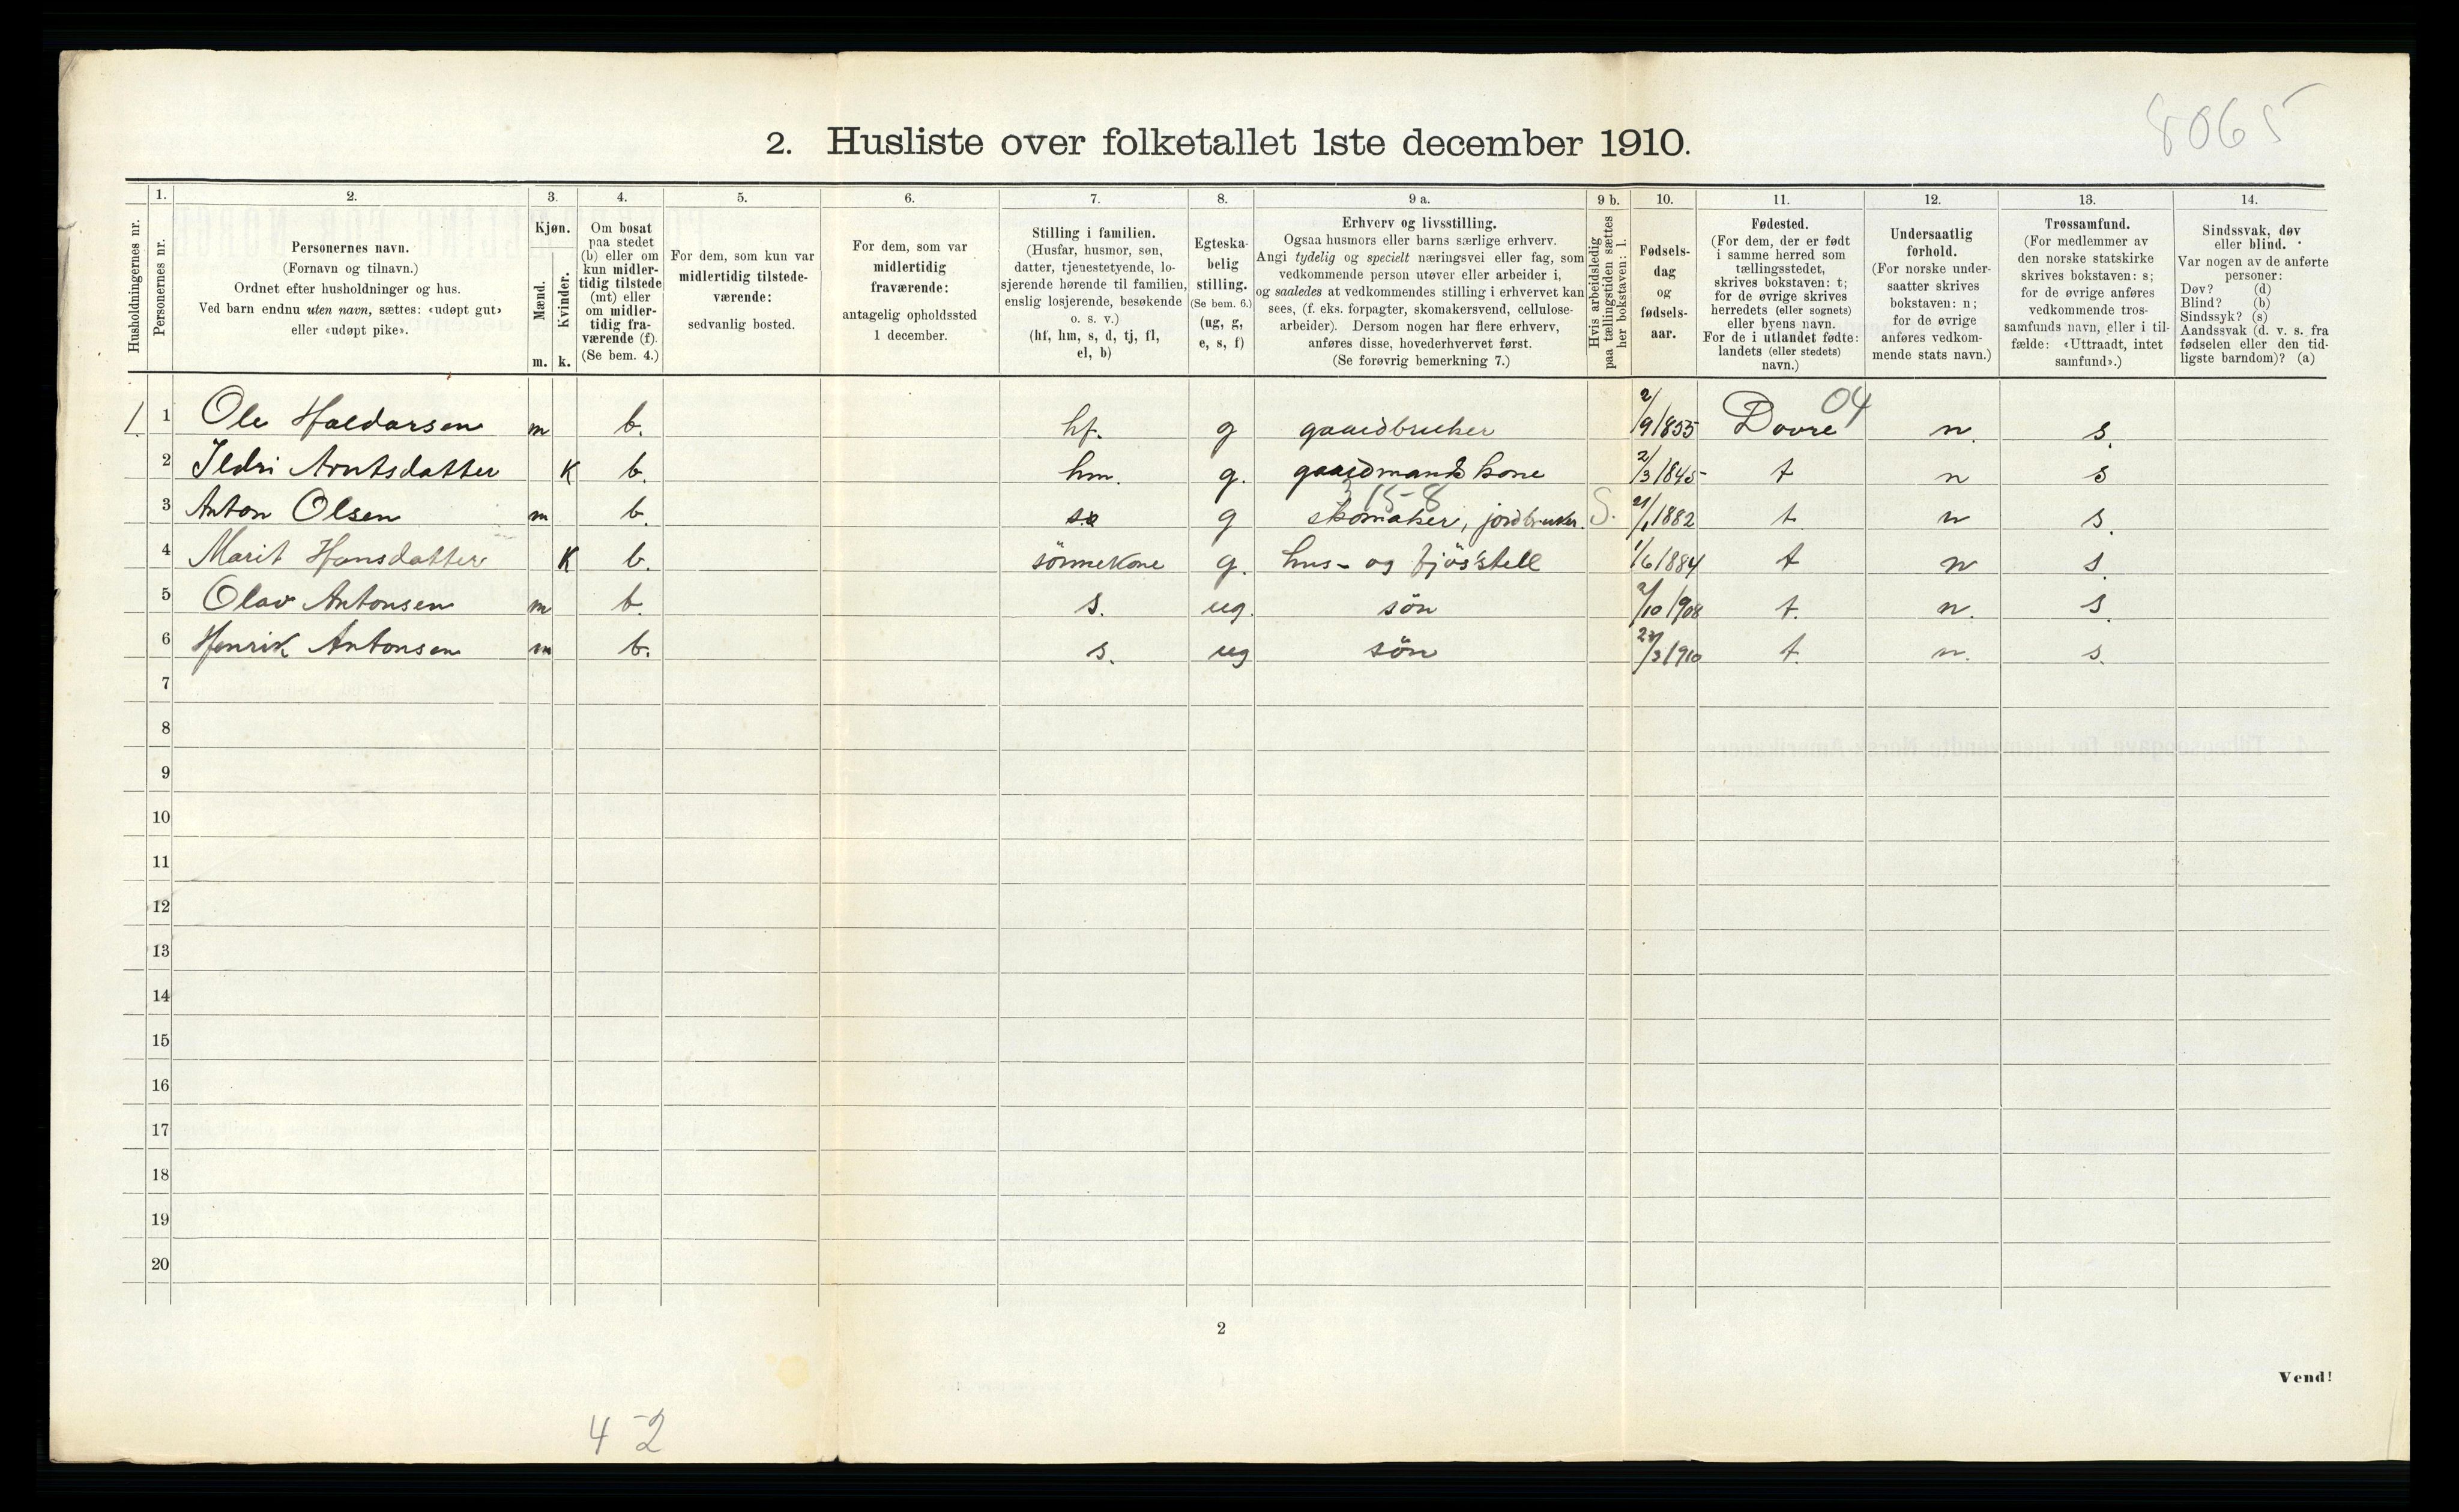 8065
2. Husliste over folketallet 1ste december 1910.
Husholdningernes nr.
1.
Personernes nr.
2.
Personernes navn.
(Fornavn og tilnavn.)
Ordnet efter husholdninger og hus.
Ved barn endnu uten navn, sættes: «udøpt gut»
eller «udøpt pike».
3.
Kjøn.
Mænd.
Kvinder.
m. k.
4.
Om bosat
paa stedet
(b) eller om
kun midler-
tidig tilstede
(mt) eller
om midler-
tidig fra-
værende (f).
(Se bem. 4.)
5.
For dem, som kun var
midlertidig tilstede-
værende:
sedvanlig bosted.
6.
For dem, som var
midlertidig
fraværende:
antagelig opholdssted
1 december.
7.
Stilling i familien.
(Husfar, husmor, søn,
datter, tjenestetyende, lo-
sjerende hørende til familien,
enslig losjerende, besøkende
o. s. v.)
(hf, hm, s, d, tj, fl,
el, b)
8.
Egteska-
belig
stilling.
(Se bem. 6.)
(ug, g,
e, s, f)
9 a.
Erhverv og livsstilling.
Ogsaa husmors eller barns særlige erhverv.
Angi tydelig og specielt næringsvei eller fag, som
vedkommende person utøver eller arbeider i,
og saaledes at vedkommendes stilling i erhvervet kan
sees, (f. eks. forpagter, skomakersvend, cellulose-
arbeider). Dersom nogen har flere erhverv,
anføres disse, hovederhvervet først.
(Se forøvrig bemerkning 7.)
9 b.
Hvis arbeidsledig
paa tællingstiden sættes
her bokstaven: l.
10.
Fødsels-
dag
og
fødsels-
aar.
11.
Fødested.
(For dem, der er født
i samme herred som
tællingsstedet,
skrives bokstaven: t;
for de øvrige skrives
herredets (eller sognets)
eller byens navn.
For de i utlandet fødte:
landets (eller stedets)
navn.)
12.
Undersaatlig
forhold.
(For norske under-
saatter skrives
bokstaven: n;
for de øvrige
anføres vedkom-
mende stats navn.)
13.
Trossamfund.
(For medlemmer av
den norske statskirke
skrives bokstaven: s;
for de øvrige anføres
vedkommende tros-
samfunds navn, eller i til-
fælde: «Uttraadt, intet
samfund».)
14.
Sindssvak, døv
eller blind.
Var nogen av de anførte
personer:
Døv? (d)
Blind? (b)
Sindssyk? (s)
Aandssvak (d. v. s. fra
fødselen eller den tid-
ligste barndom)? (a)
04
1 1 Ole Haldorsen m b. hf. g gaardbruker 2/9 1855 Dovre n. s.
2 Ildri Arntsdatter K b. hm. g. gaardmands kone 2/3 1845 t n s
15-8
3 Anton Olsen m b. s g skomaker, jordbruker. S. 21/1 1882 t n s.
4 Marit Hansdatter K b. sönnekone g. hus- og fjös'stell 1/6 1884 t n s.
5 Olav Antonsen m b. s. ug. sön 2/10 1908 t. n. s.
6 Henrik Antonsen m b. s. ug sön /3 1910 t. n. s.
7
8
9
10
11
12
13
14
15
16
17
18
19
20
2
Vend!
4-2